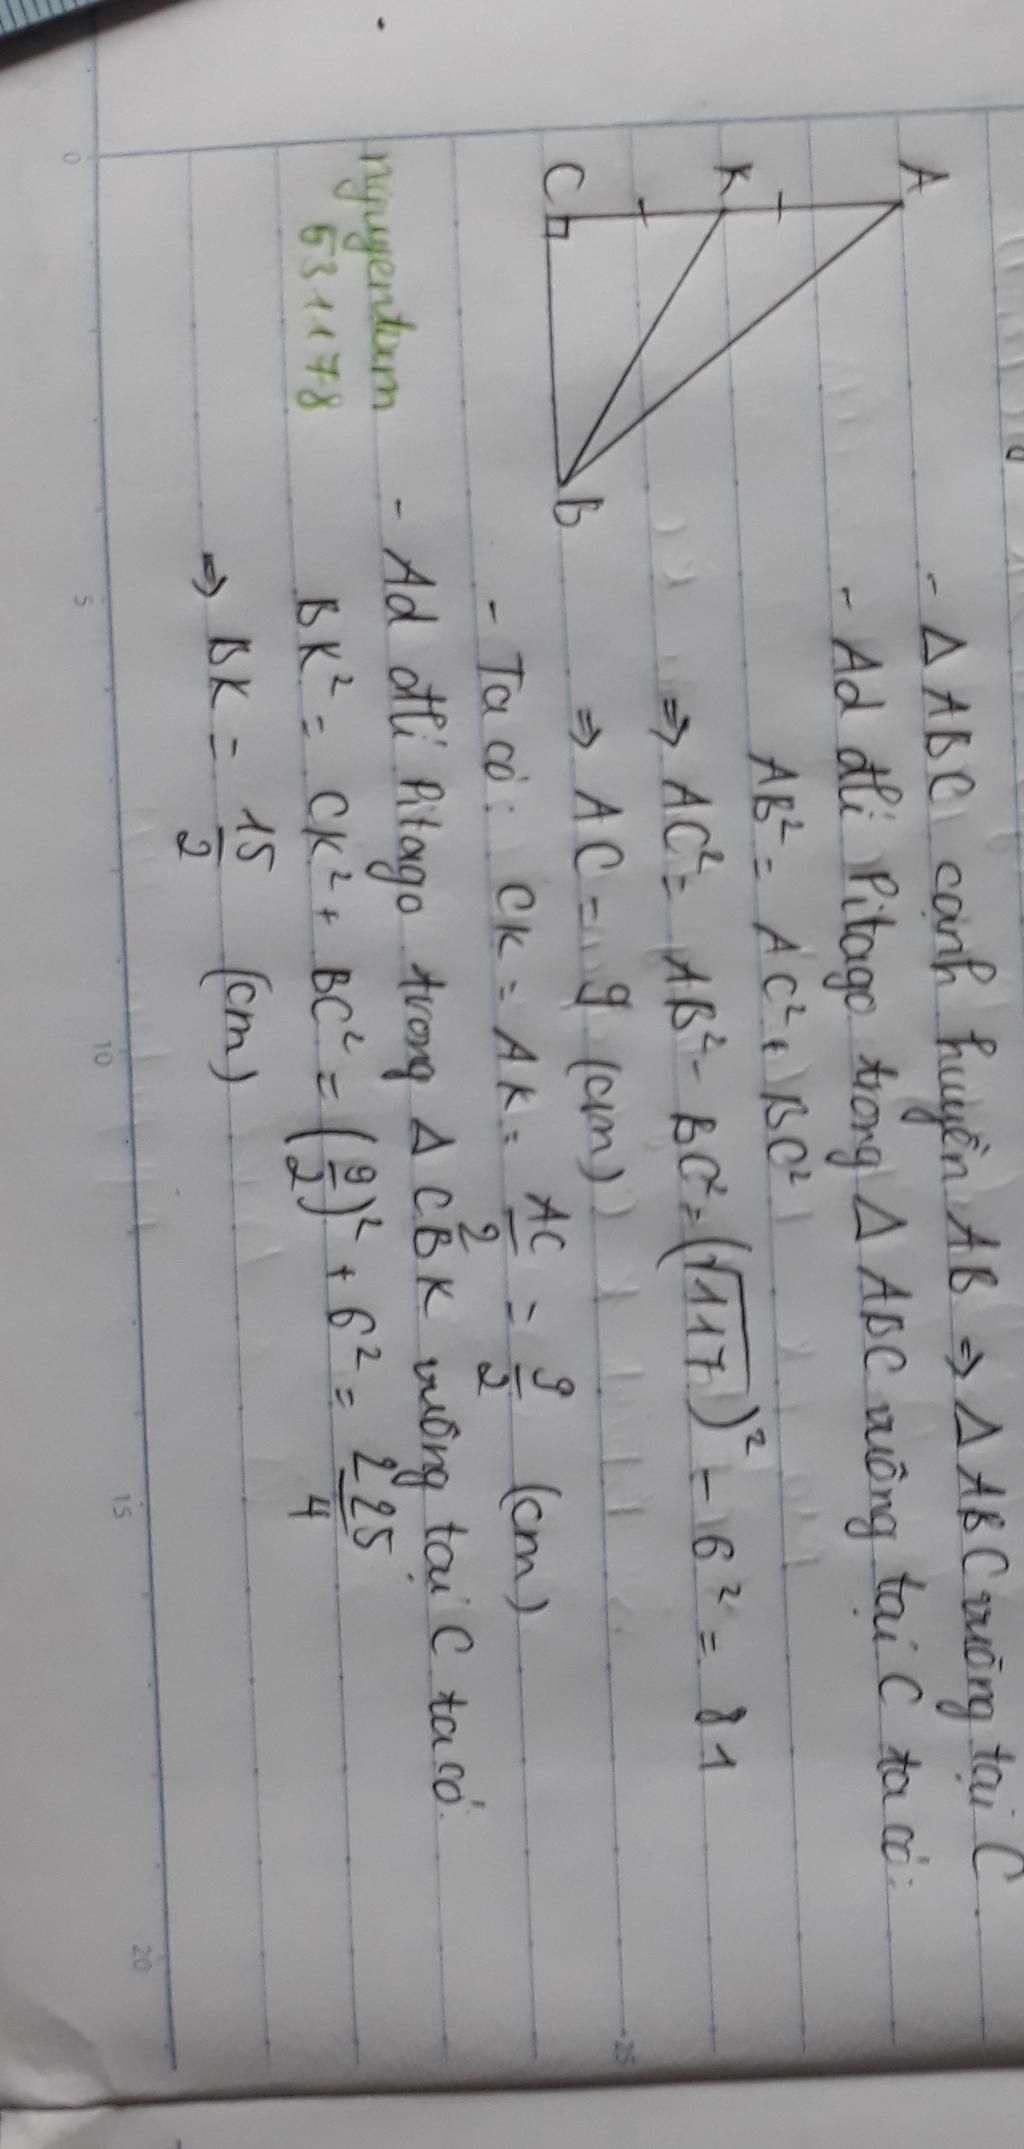 - Δ ABC cạnh huyền AB ⇒ Δ ABC vuông tại C
- Ad đlí Pitago trong Δ ABC vuông tại C ta có:
AB² = AC² + BC²
⇒ AC² = AB² - BC² = (√117)² - 6² = 81
⇒ AC = 9 (cm)
- Ta có: CK = AK = AC/2 = 9/2 (cm)
- Ad đlí Pitago trong Δ CBK vuông tại C ta có:
BK² = CK² + BC² = (9/2)² + 6² = 225/4
⇒ BK = 15/2 (cm)
A
K
C
B
nguyentxm
531178
0
5
10
15
20
25